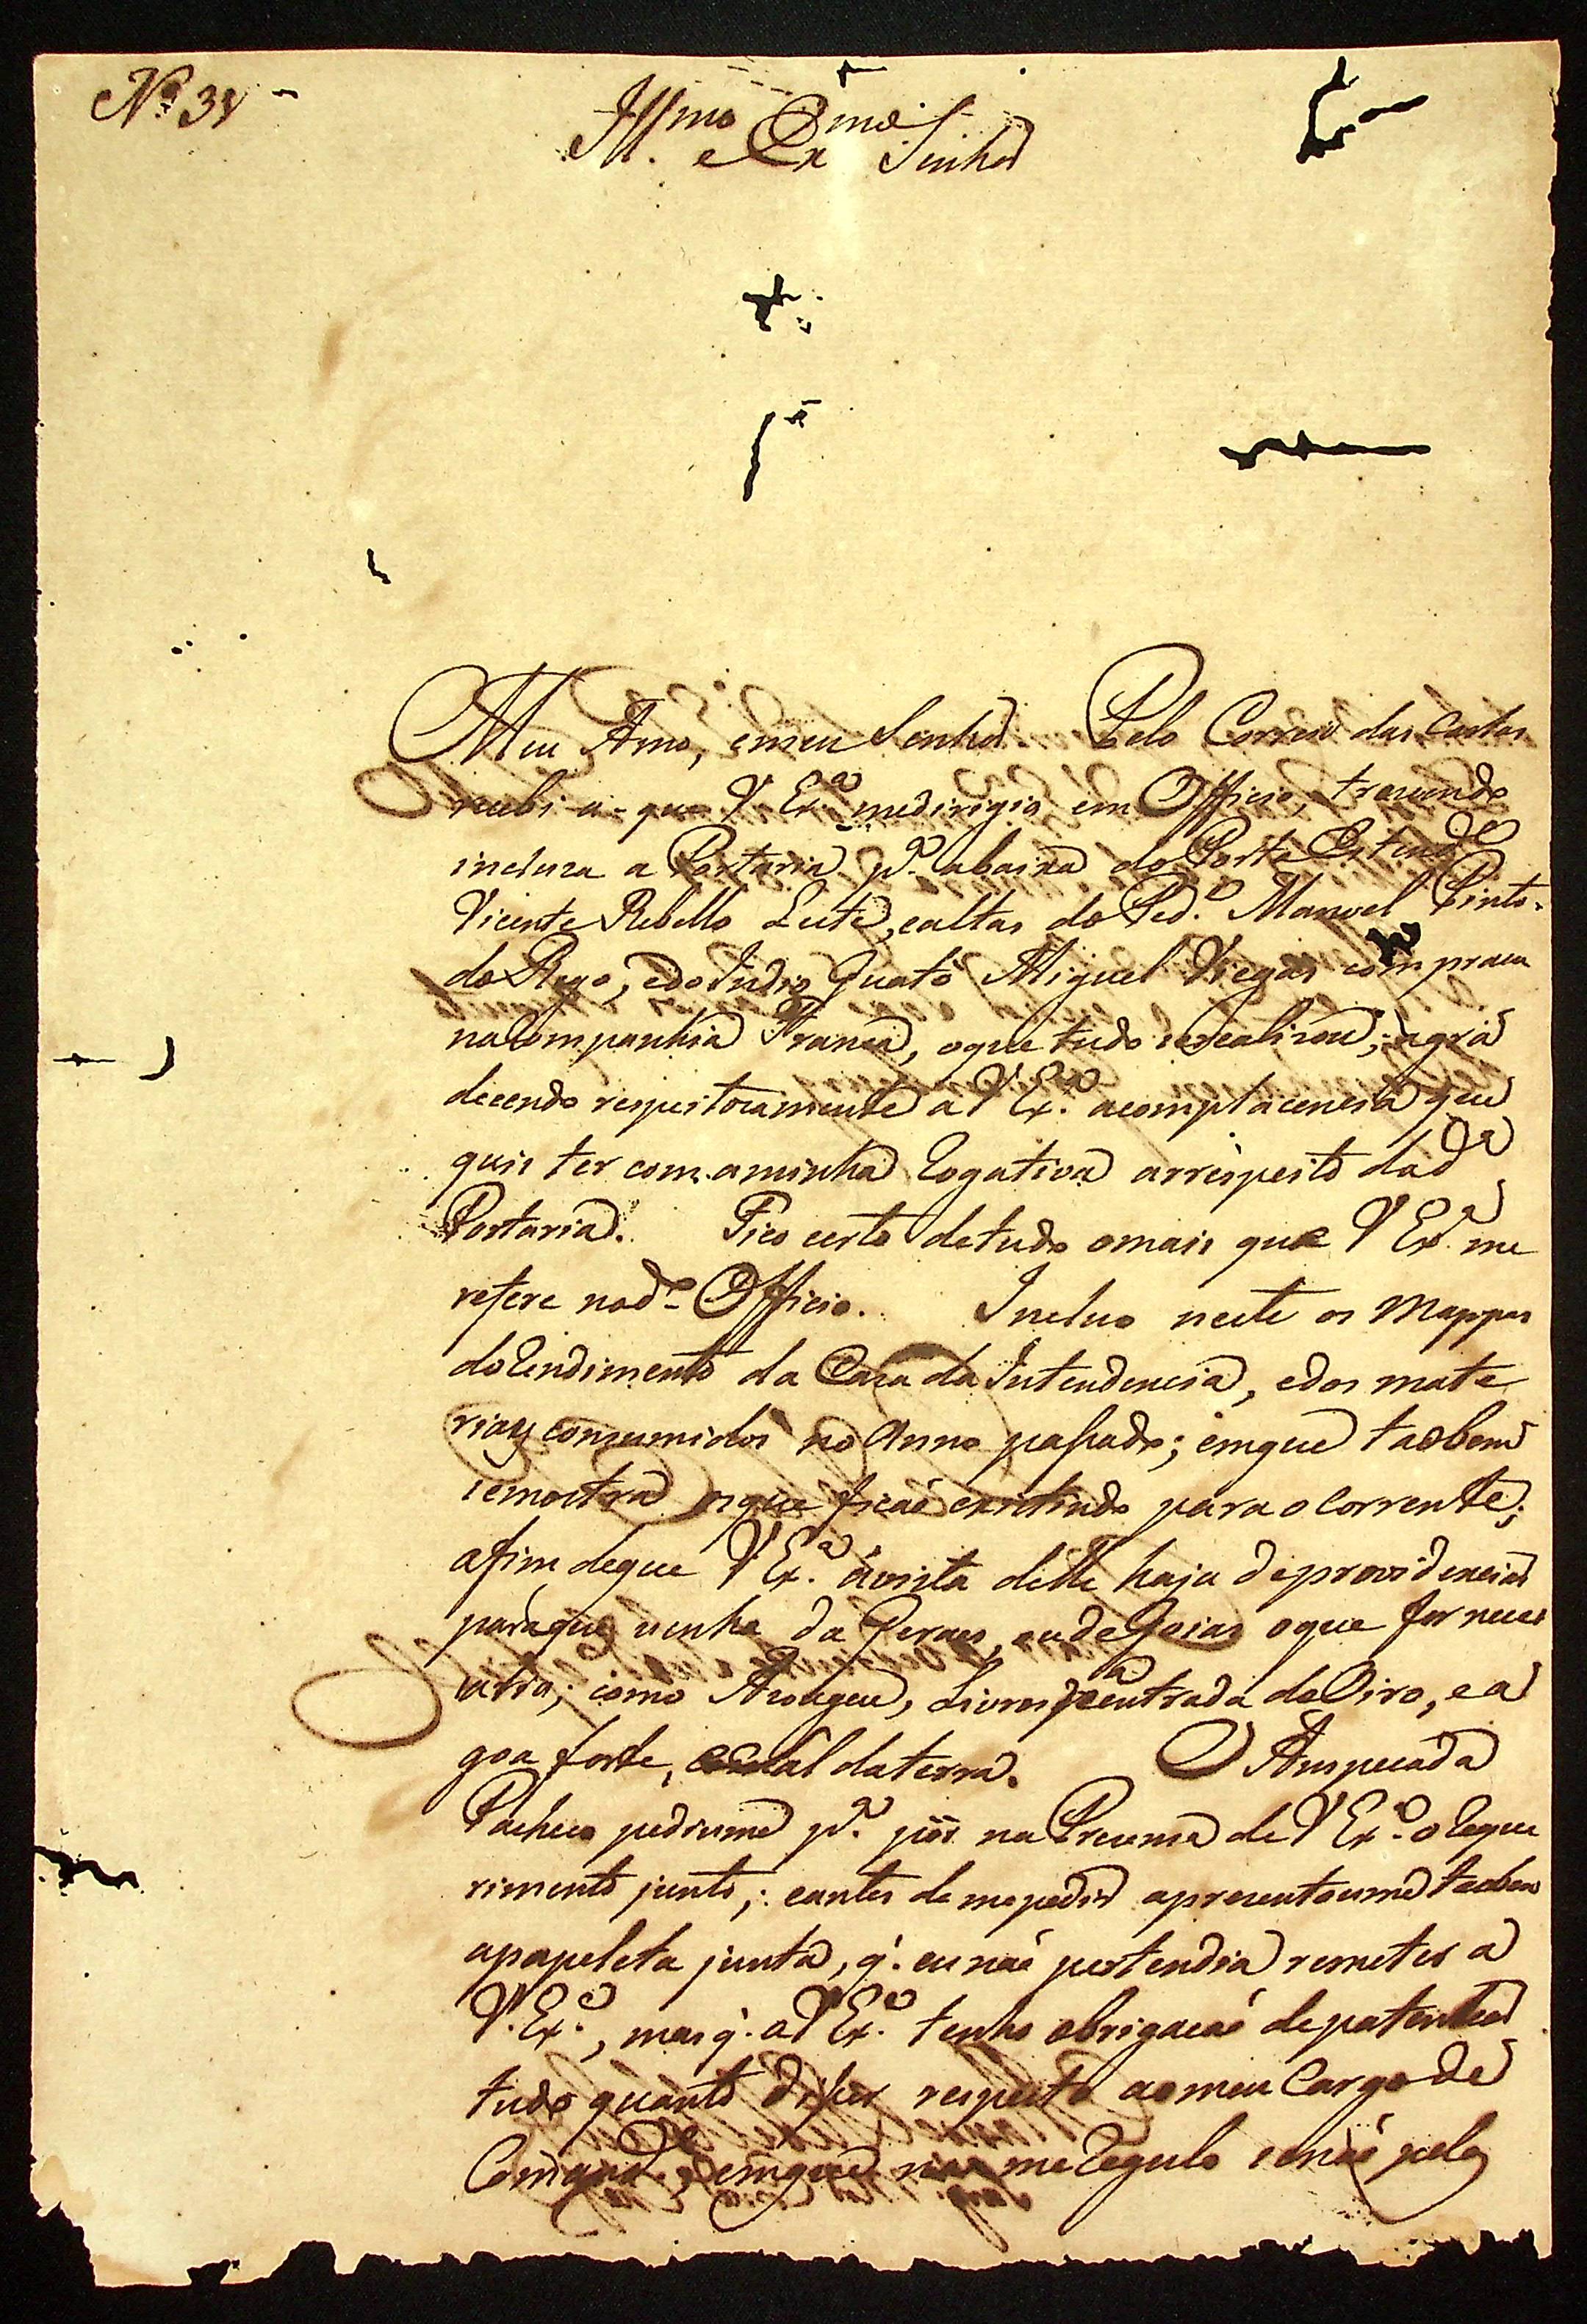 Nº 38
Ill.mo e Ex.mo Senhor
Meu Amo, e meu Senhor Pelo Correio das Cartas
recebi a que V Ex.a me dirigio em Officio, trazendo
incluza a Portaria p.a abaixa do Porta Estend.e
Vicente Rebello Leite, e altas do Ped.o Manoel Pinto
do Rego, e do Indio Guató Miguel Viegas com praça
na Companhia Franca, o que tudo se realizou; agra
decendo respeitozamente a V Ex.a a complacencia que
quis ter com a minha Rogativa arrespeito da d.a
Portaria. Fico certo de tudo o mais que V Ex.a me
refere no d.o Officio. Incluo neste os Mappas
do Rendimento da Caza da Intendencia, e dos mate
riays consumidos no Anno passado; em que taobem
se mostra os que ficaõ existindo para o Corrente;
afim de que V Ex.a á vista delle haja de providenciar
para que venha da Geraes, ou de Goias o que for neces
sario; como Azougue, Livros p.a entrada do Oiro, e a
goa forte, e sal da terra. O Anspeçada
Pacheco pedrume p.a pôr na Prezença de V Ex.a o Reque
rimento junto; e antes de me pedir aprezentoume taobem
a papeleta junta, q. eu naõ pertendia remeter a
V. Ex.a, mas q. a V Ex.a tenho obrigaçaõ de patentear
tudo quanto disser respeito ao meu Cargo de
Comand.e, em que me Regulo senaõ pelo